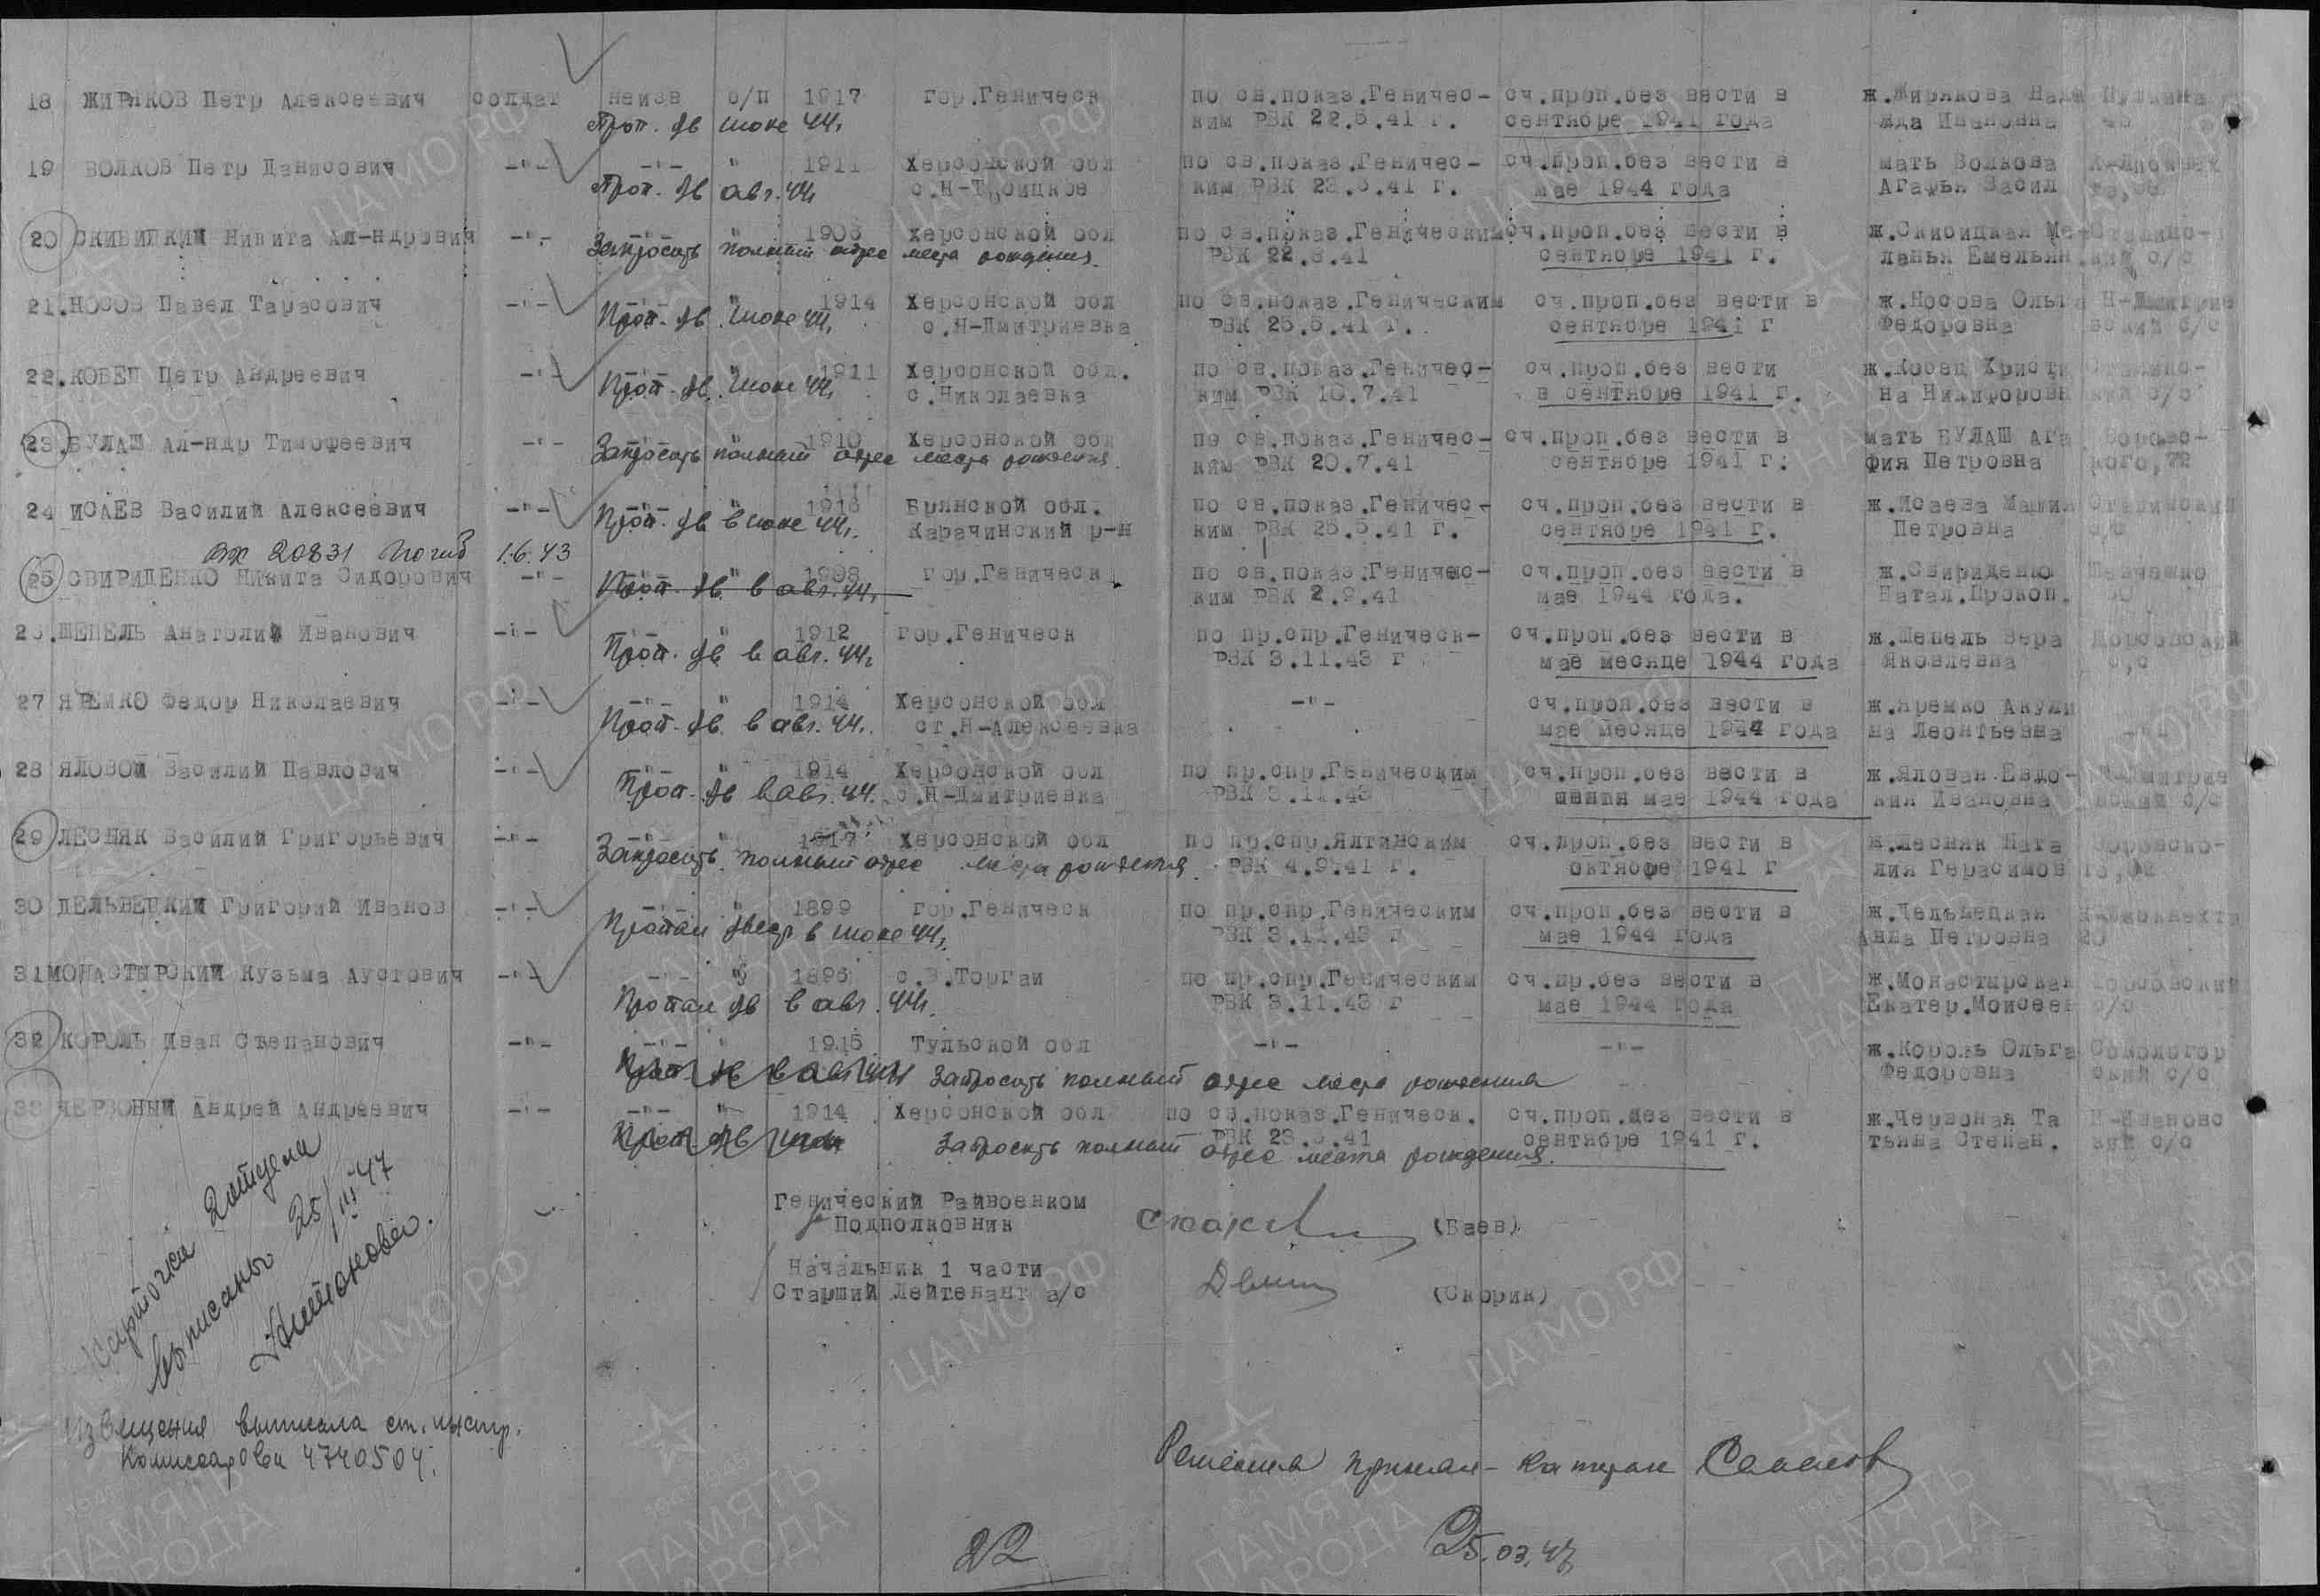 18 ЖИРЯКОВ Петр Алексеевич солдат неизв б/п 1917 гор.Геническ по св.показ.Геничес- сч.проп.без вести в ж.Жирякова Наде Пушкина
Проп. б/в июне 44г. ким РВК 22.5.41 г. сентябре 1941 года жда Ивановна
19 ВОЛКОВ Петр Данисович -"- -"- " 1911 Херсонской обл по св.показ.Геничес- сч.проп.без вести в мать Волкова
Проп. б/в авг. 44г с.Н-Троицкое ким РВК 23.5.41 г. мае 1944 года Агафья Васил
20 СКИБИЦКИЙ Никита Ал-ндрович -"- 1906 Херсонской обл по св.показ.Геническим сч.проп.без вести в ж.Скибицкая Ме- Сталинс-
Запросить полный адрес места рождения. РВК 22.6.41 сентябре 1941 г. ланья Емельян. кий с/с
21.НОСОВ Павел Тарасович -"- -"- " 1914 Херсонской обл по св.показ.Геническим сч.проп.без вести в ж.Носова Ольга Н-Дмитрие
Проп. б/в. июне 44г. с.Н-Дмитриевка РВК 25.5.41 г. сентябре 1941 г Федоровна вский с/с
22.КОБЕЦ Петр Андреевич -"- -"- " 1911 Херсонской обл. по св.показ.Геничес- сч.проп.без вести ж.Кобец Христи Сталинс-
Проп. б/в. июне 44г. с.Николаевка ким РВК 10.7.41 в сентябре 1941 г. на Никифоровн кий с/с
23.БУЛАШ Ал-ндр Тимофеевич -"- -"- " 1910 Херсонской обл по св.показ.Геничес- сч.проп.без вести в мать БУЛАШ Ага
Запросить полный адрес места рождения. ким РВК 20.7.41 сентябре 1941 г. фия Петровна кого,72
24 ИСАЕВ Василий Алексеевич -"- -"- " 1916 Брянской обл. по св.показ.Геничес- сч.проп.без вести в ж.Исаева Мария Сталинский
Проп. б/в в июне 44г. Карачинский р-н ким РВК 25.5.41 г. сентябре 1941 г. Петровна с/с
вх 20831 Погиб 1.6.43
25 СВИРИДЕНКО Никита Сидорович -"- -"- " 1908 гор.Геническ по св.показ.Геничес- сч.проп.без вести в ж.Свириденко Шевченко
Проп. б/в. в авг. 44г. ким РВК 2.9.41 мае 1944 года. Натал.Прокоп.
26.ШЕПЕЛЬ Анатолий Иванович -"- -"- " 1912 гор.Геническ по пр.спр.Геническ- сч.проп.без вести в ж.Шепель Вера
Проп. б/в в авг. 44г. РВК 3.11.43 г мае месяце 1944 года Яковлевна с,с
27 ЯРЕМКО Федор Николаевич -"- -"- " 1914 Херсонской обл -"- сч.проп.без вести в ж.Яремко Акули
Проп. б/в. в авг. 44г. ст.Н-Алексеевка мае месяце 1944 года на Леонтьевна -"-
28 ЯЛОВОЙ Василий Павлович -"- -"- " 1914 Херсонской обл по пр.спр.Геническим сч.проп.без вести в ж.Яловая Евдо- Н-Дмитрие
Проп. б/в в авг. 44г. с.Н-Дмитриевка РВК 3.11.43 мае 1944 года кия Ивановна вский с/с
29 ЛЕСНЯК Василий Григорьевич -"- -"- " 1917 Херсонской обл по пр.спр.Ялтинским сч.проп.без вести в ж.Лесняк Ната
Запросить полный адрес места рождения. РВК 4.9.41 г. октябре 1941 г лия Герасимов
30 ДЕЛЬВЕЦКИЙ Григорий Иванов -"- -"- " 1899 гор.Геническ по пр.спр.Геническим сч.проп.без вести в ж.Дельвецкая
Пропал б/вести в июне 44г. РВК 3.11.43 г мае 1944 года Анна Петровна 20
31 МОНАСТЫРСКИЙ Кузьма Аустович -"- -"- " 1896 с.В.Торгаи по пр.спр.Геническим сч.пр.без вести в ж.Монастырская
Пропал б/в в авг. 44г. РВК 3.11.43 г мае 1944 года Екатер.Моисеев с/с
32 КОРОЛЬ Иван Степанович -"- -"- " 1915 Тульской обл -"- -"- ж.Король Ольга Сокологор
Проп. б/в в авг 44г Запросить полный адрес места рождения Федоровна ский с/с
33 ЧЕРВОНЫЙ Андрей Андреевич -"- -"- " 1914 Херсонской обл по св.показ.Геническ. сч.проп.без вести в ж.Червоная Та Н-Ивановс
Проп б/в июне Запросить полный адрес места рождения. РВК 23.5.41 сентябре 1941 г. тьяна Степан. кий с/с
Генический Райвоенком
Подполковник (Баев)
Начальник 1 части
Старший Лейтенант а/с (Скорик)
Карточки 2 отдела
выписаны 25/III 47
Антонова.
Извещения выписала ст. инстр.
Комиссарова 474050 4.
Решения принял - капитан
25.03.47
22
ЦАМО.РФ
ПАМЯТЬ
НАРОДА